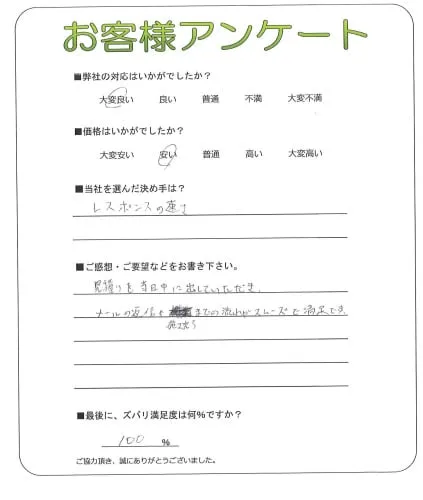 お客様アンケート
■弊社の対応はいかがでしたか？
大変良い 良い 普通 不満 大変不満
■価格はいかがでしたか？
大変安い 安い 普通 高い 大変高い
■当社を選んだ決め手は？
レスポンスの速さ
■ご感想・ご要望などをお書き下さい。
見積りを当日中に出していただき、
メールの返信や までの流れがスムーズで満足でき
■最後に、ズバリ満足度は何％ですか？
100 %
ご協力頂き、誠にありがとうございました。